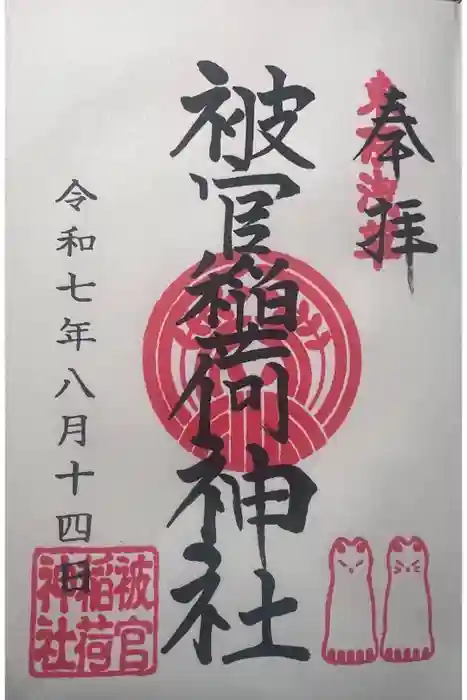 奉拝
被官稲荷神社
令和七年八月十四日
被官
稲荷
神社